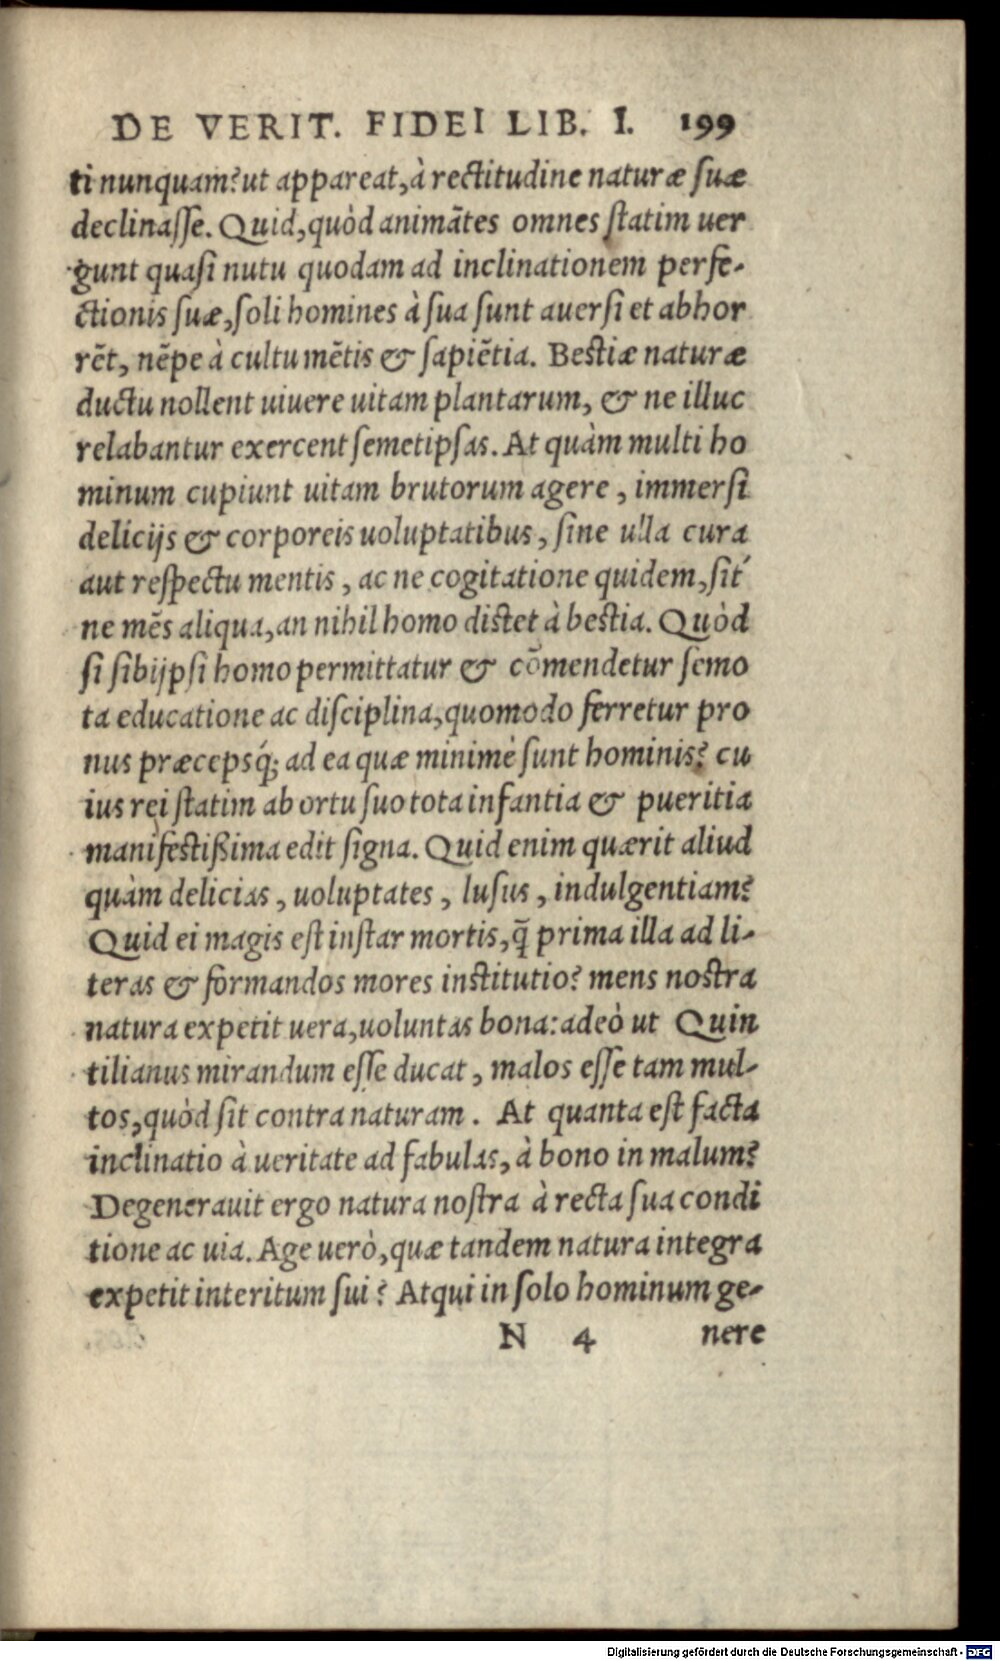 DE VERIT. FIDEI LIB. I. 199
ti nunquam? ut appareat, à rectitudine naturæ suæ
declinasse. Quid, quòd animātes omnes statim uer
gunt quasi nutu quodam ad inclinationem perfe-
ctionis suæ, soli homines à sua sunt auersi et abhor
rēt, nēpe à cultu mētis & sapiētia. Bestiæ naturæ
ductu nollent uiuere uitam plantarum, & ne illuc
relabantur exercent semetipsas. At quàm multi ho
minum cupiunt uitam brutorum agere, immersi
delicijs & corporeis uoluptatibus, sine ulla cura
aut respectu mentis, ac ne cogitatione quidem, sit´
ne mēs aliqua, an nihil homo distet à bestia. Quòd
si sibijpsi homo permittatur & cōmendetur semo
ta educatione ac disciplina, quomodo ferretur pro
nus præcepsq́; ad ea quæ minimè sunt hominis? cu
ius rei statim ab ortu suo tota infantia & pueritia
manifestißima edit signa. Quid enim quærit aliud
quàm delicias, uoluptates, lusus, indulgentiam?
Quid ei magis est instar mortis, q̄ prima illa ad li-
teras & formandos mores institutio? mens nostra
natura expetit uera, uoluntas bona: adeò ut Quin
tilianus mirandum esse ducat, malos esse tam mul-
tos, quòd sit contra naturam. At quanta est facta
inclinatio à ueritate ad fabulas, à bono in malum?
Degenerauit ergo natura nostra à recta sua condi
tione ac uia. Age uerò, quæ tandem natura integra
expetit interitum sui? Atqui in solo hominum ge-
N 4 nere
Digitalisierung gefördert durch die Deutsche Forschungsgemeinschaft - DFG